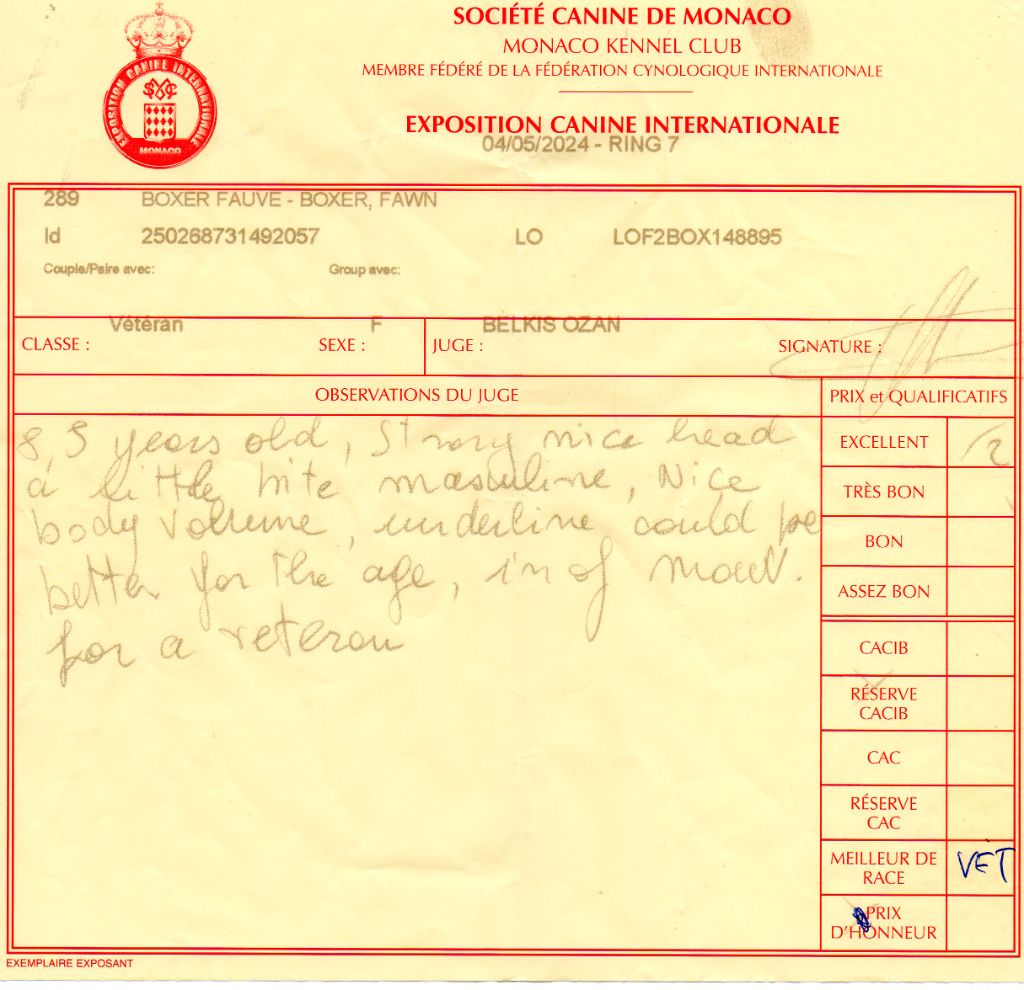 SOCIÉTÉ CANINE DE MONACO
MONACO KENNEL CLUB
MEMBRE FÉDÉRÉ DE LA FÉDÉRATION CYNOLOGIQUE INTERNATIONALE
EXPOSITION CANINE INTERNATIONALE
MONACO
EXPOSITION CANINE INTERNATIONALE
04/05/2024 - RING 7
289 BOXER FAUVE - BOXER, FAWN
Id 250268731492057 LO LOF2BOX148895
Couple/Paire avec: Group avec:
Vétéran F BELKIS OZAN
CLASSE : SEXE : JUGE : SIGNATURE :
OBSERVATIONS DU JUGE PRIX et QUALIFICATIFS
years old, Strong nice head
a little masculine, Nice
body volume, underline could be
better for the age,
for a veteran
EXCELLENT
TRÈS BON
BON
ASSEZ BON
CACIB
RÉSERVE
CACIB
CAC
RÉSERVE
CAC
MEILLEUR DE
RACE VET
PRIX
D'HONNEUR
EXEMPLAIRE EXPOSANT